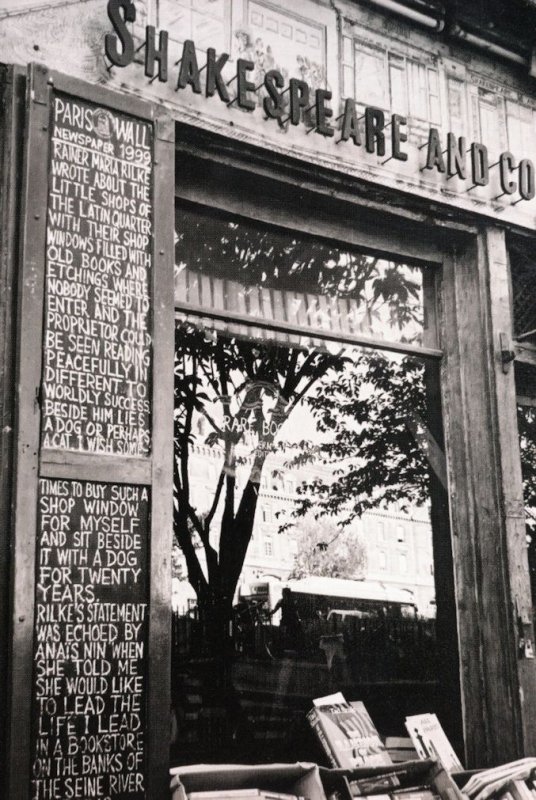 SHAKESPEARE AND CO
PARIS WALL
NEWSPAPER 1999
RAINER MARIA RILKE
WROTE ABOUT THE
LITTLE SHOPS OF
THE LATIN QUARTER
WITH THEIR SHOP
WINDOWS FILLED WITH
OLD BOOKS AND
ETCHINGS WHERE
NOBODY SEEMED TO
ENTER AND THE
PROPRIETOR COULD
BE SEEN READING
PEACEFULLY IN
DIFFERENT TO
WORLDLY SUCCESS
BESIDE HIM LIES
A DOG OR PERHAPS
A CAT. I WISH SOME
TIMES TO BUY SUCH A
SHOP WINDOW
FOR MYSELF
AND SIT BESIDE
IT WITH A DOG
FOR TWENTY
YEARS.
RILKE'S STATEMENT
WAS ECHOED BY
ANAÏS NIN WHEN
SHE TOLD ME
SHE WOULD LIKE
TO LEAD THE
LIFE I LEAD
IN A BOOKSTORE
ON THE BANKS OF
THE SEINE RIVER
RARE BOO